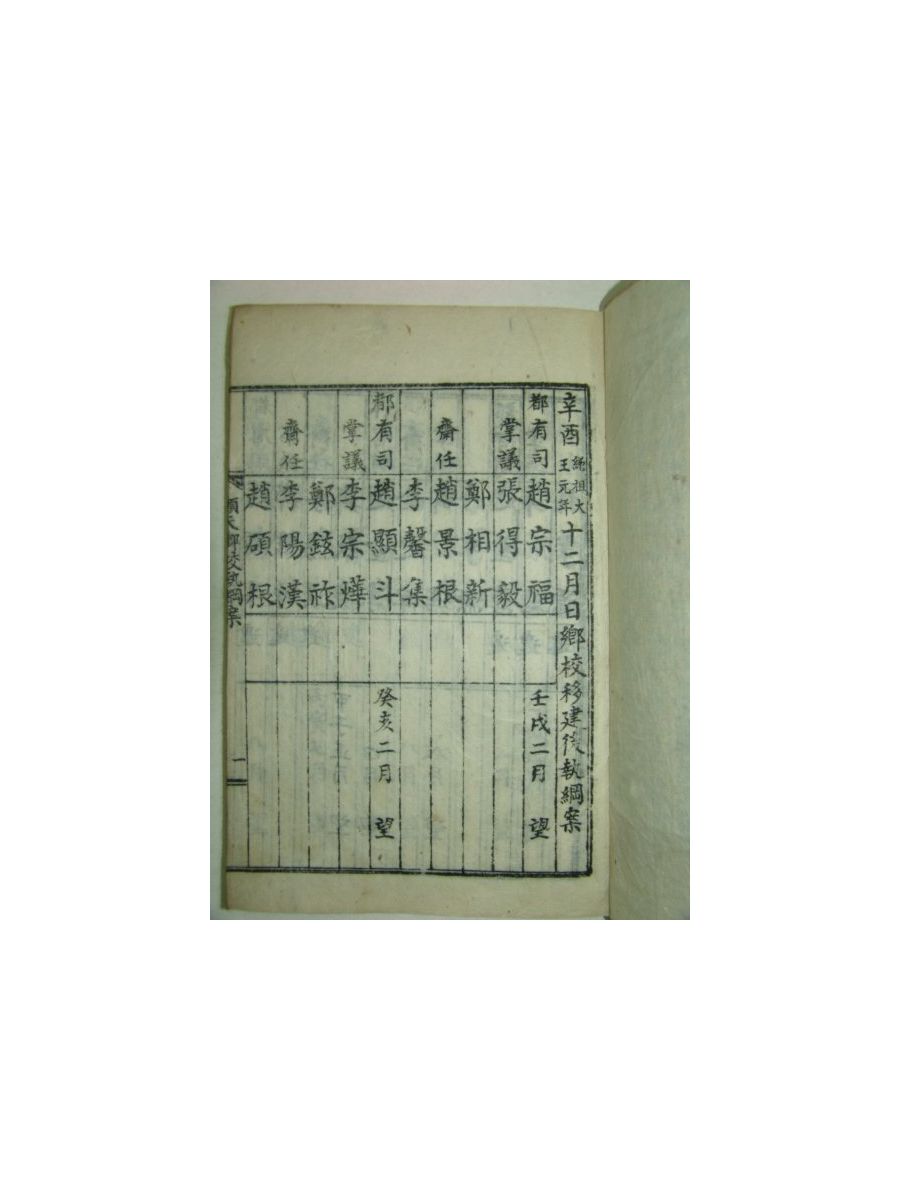 辛酉純祖大王元年十二月日鄉校移建後執綱案
都有司趙宗福壬戌二月望
掌議張得毅
鄭相新
齋任趙景根
李馨集
都有司趙顯斗癸亥二月望
掌議李宗燁
鄭鉉祚
齋任李陽漢
趙碩根
順天鄉校執綱案一